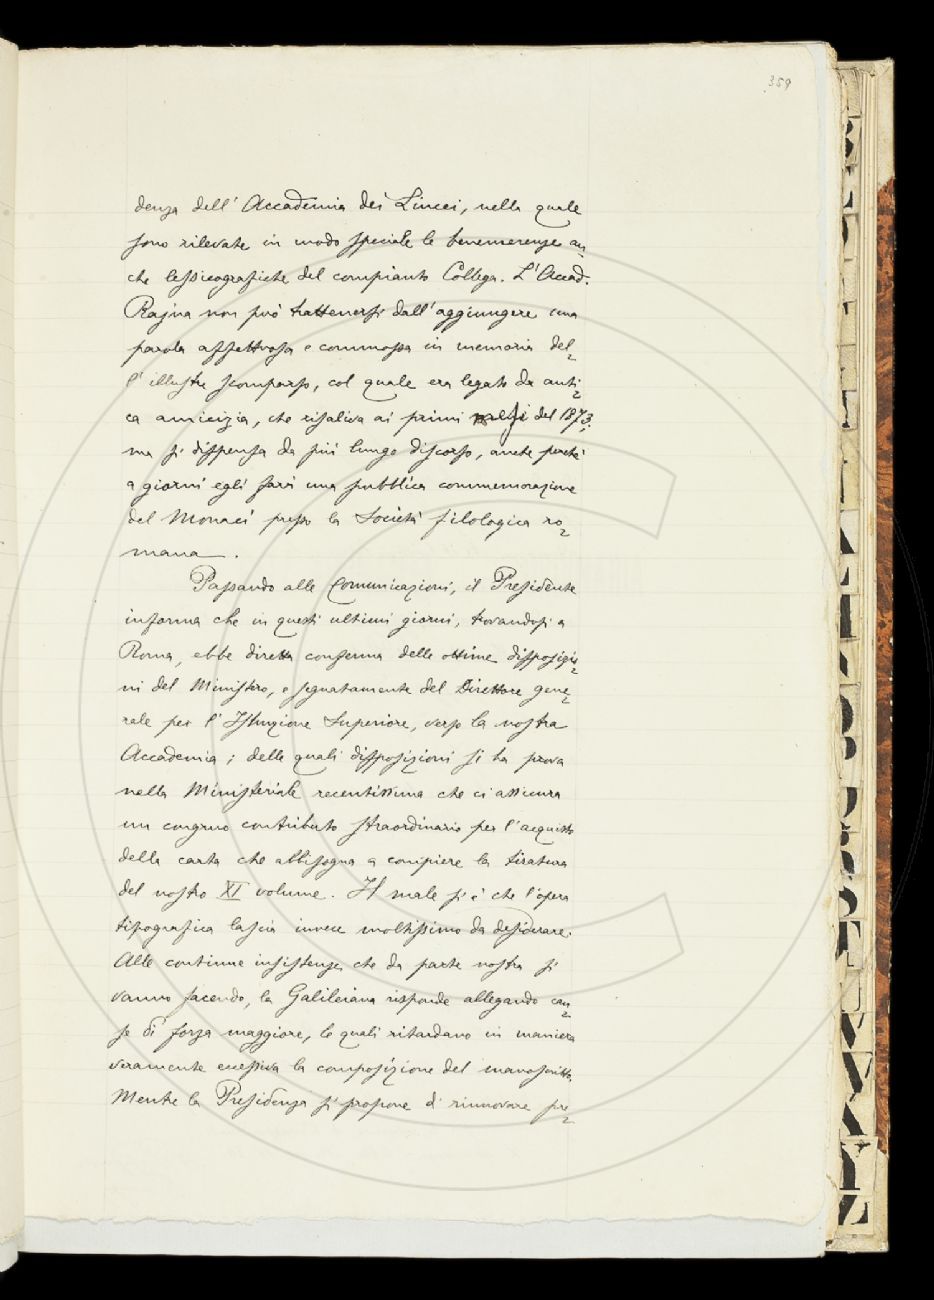 359
denza dell' Accademia dei Lincei, nella quale
sono rilevate in modo speciale le benemerenze an=
che lessicografiche del compianto Collega. L'Accad.
Rajna non può trattenersi dall'aggiungere una
parola affettuosa e commossa in memoria del=
l'illustre scomparso, col quale era legato da anti=
ca amicizia, che risaliva ai primi mesi del 1873;
ma si dispensa da più lungo discorso, anche perché
a giorni egli farà una pubblica commemorazione
del Monaci presso la Società filologica ro=
mana.
Passando alle Comunicazioni, il Presidente
informa che in questi ultimi giorni, trovandosi a
Roma, ebbe diretta conferma delle ottime disposizio=
ni del Ministero, e segnatamente del Direttore gene=
rale per l'Istruzione Superiore, verso la nostra
Accademia; delle quali disposizioni si ha prova
nella Ministeriale recentissima che ci assicura
un congruo contributo straordinario per l'acquisto
della carta che abbisogna a compiere la tiratura
del nostro XI volume. Il male si è che l'opera
tipografica lascia invece moltissimo da desiderare.
Alle continue insistenze che da parte nostra si
vanno facendo, la Galileiana risponde allegando cau=
se di forza maggiore, le quali ritardano in maniera
veramente eccessiva la composizione del manoscritto.
Mentre la Presidenza si propone di rinnovare pre=